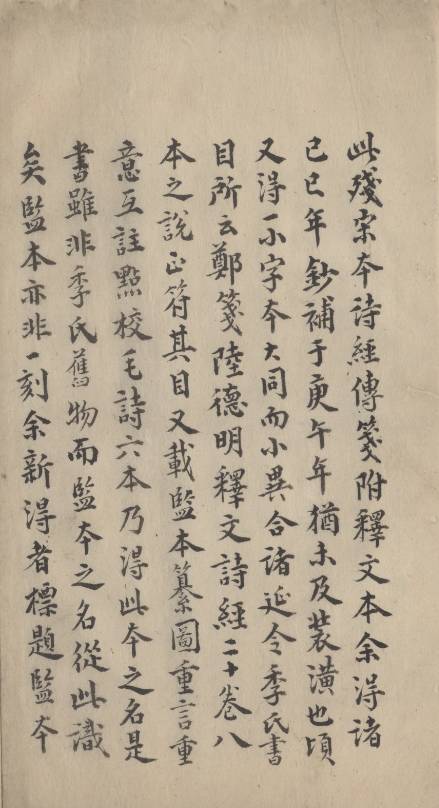 此殘宋本詩經傳箋附釋文本余得諸
己巳年鈔補于庚午年猶未及裝潢也頃
又得一小字本大同而小異合諸延令季氏書
目所云鄭箋陸德明釋文詩經二十卷八
本之說正符其目又載監本纂圖重言重
意互註點校毛詩六本乃得此本之名是
書雖非季氏舊物而監本之名從此識
矣監本亦非一刻余新得者標題監本